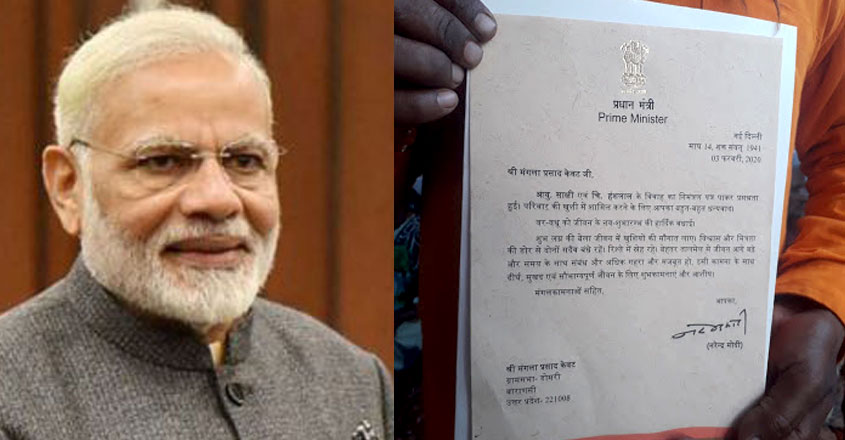 प्रधान मंत्री
Prime Minister
नई दिल्ली
माघ 14, शक संवत् 1941
03 फरवरी, 2020
श्री मंगला प्रसाद केवट जी,
आयु. साक्षी एवं चि. हंसलाल के विवाह का निमंत्रण पत्र पाकर प्रसन्नता
हुई। परिवार की खुशी में शामिल करने के लिए आपका बहुत-बहुत धन्यवाद।
वर-वधू को जीवन के नव-शुभारम्भ की हार्दिक बधाई।
शुभ लग्न की बेला जीवन में खुशियों की सौगात लाए। विश्वास और मित्रता
की डोर से दोनों सदैव बंधे रहें। रिश्ते में स्नेह रहे। बेहतर तालमेल से जीवन आगे बढ़े
और समय के साथ संबंध और अधिक गहरा और मजबूत हो, इसी कामना के साथ
दीर्घ, सुखद एवं सौभाग्यपूर्ण जीवन के लिए शुभकामनाएं और आशीष।
मंगलकामनाओं सहित,
आपका,
(नरेन्द्र मोदी)
श्री मंगला प्रसाद केवट
ग्रामसभा- डोमरी
वाराणसी
उत्तर प्रदेश- 221008